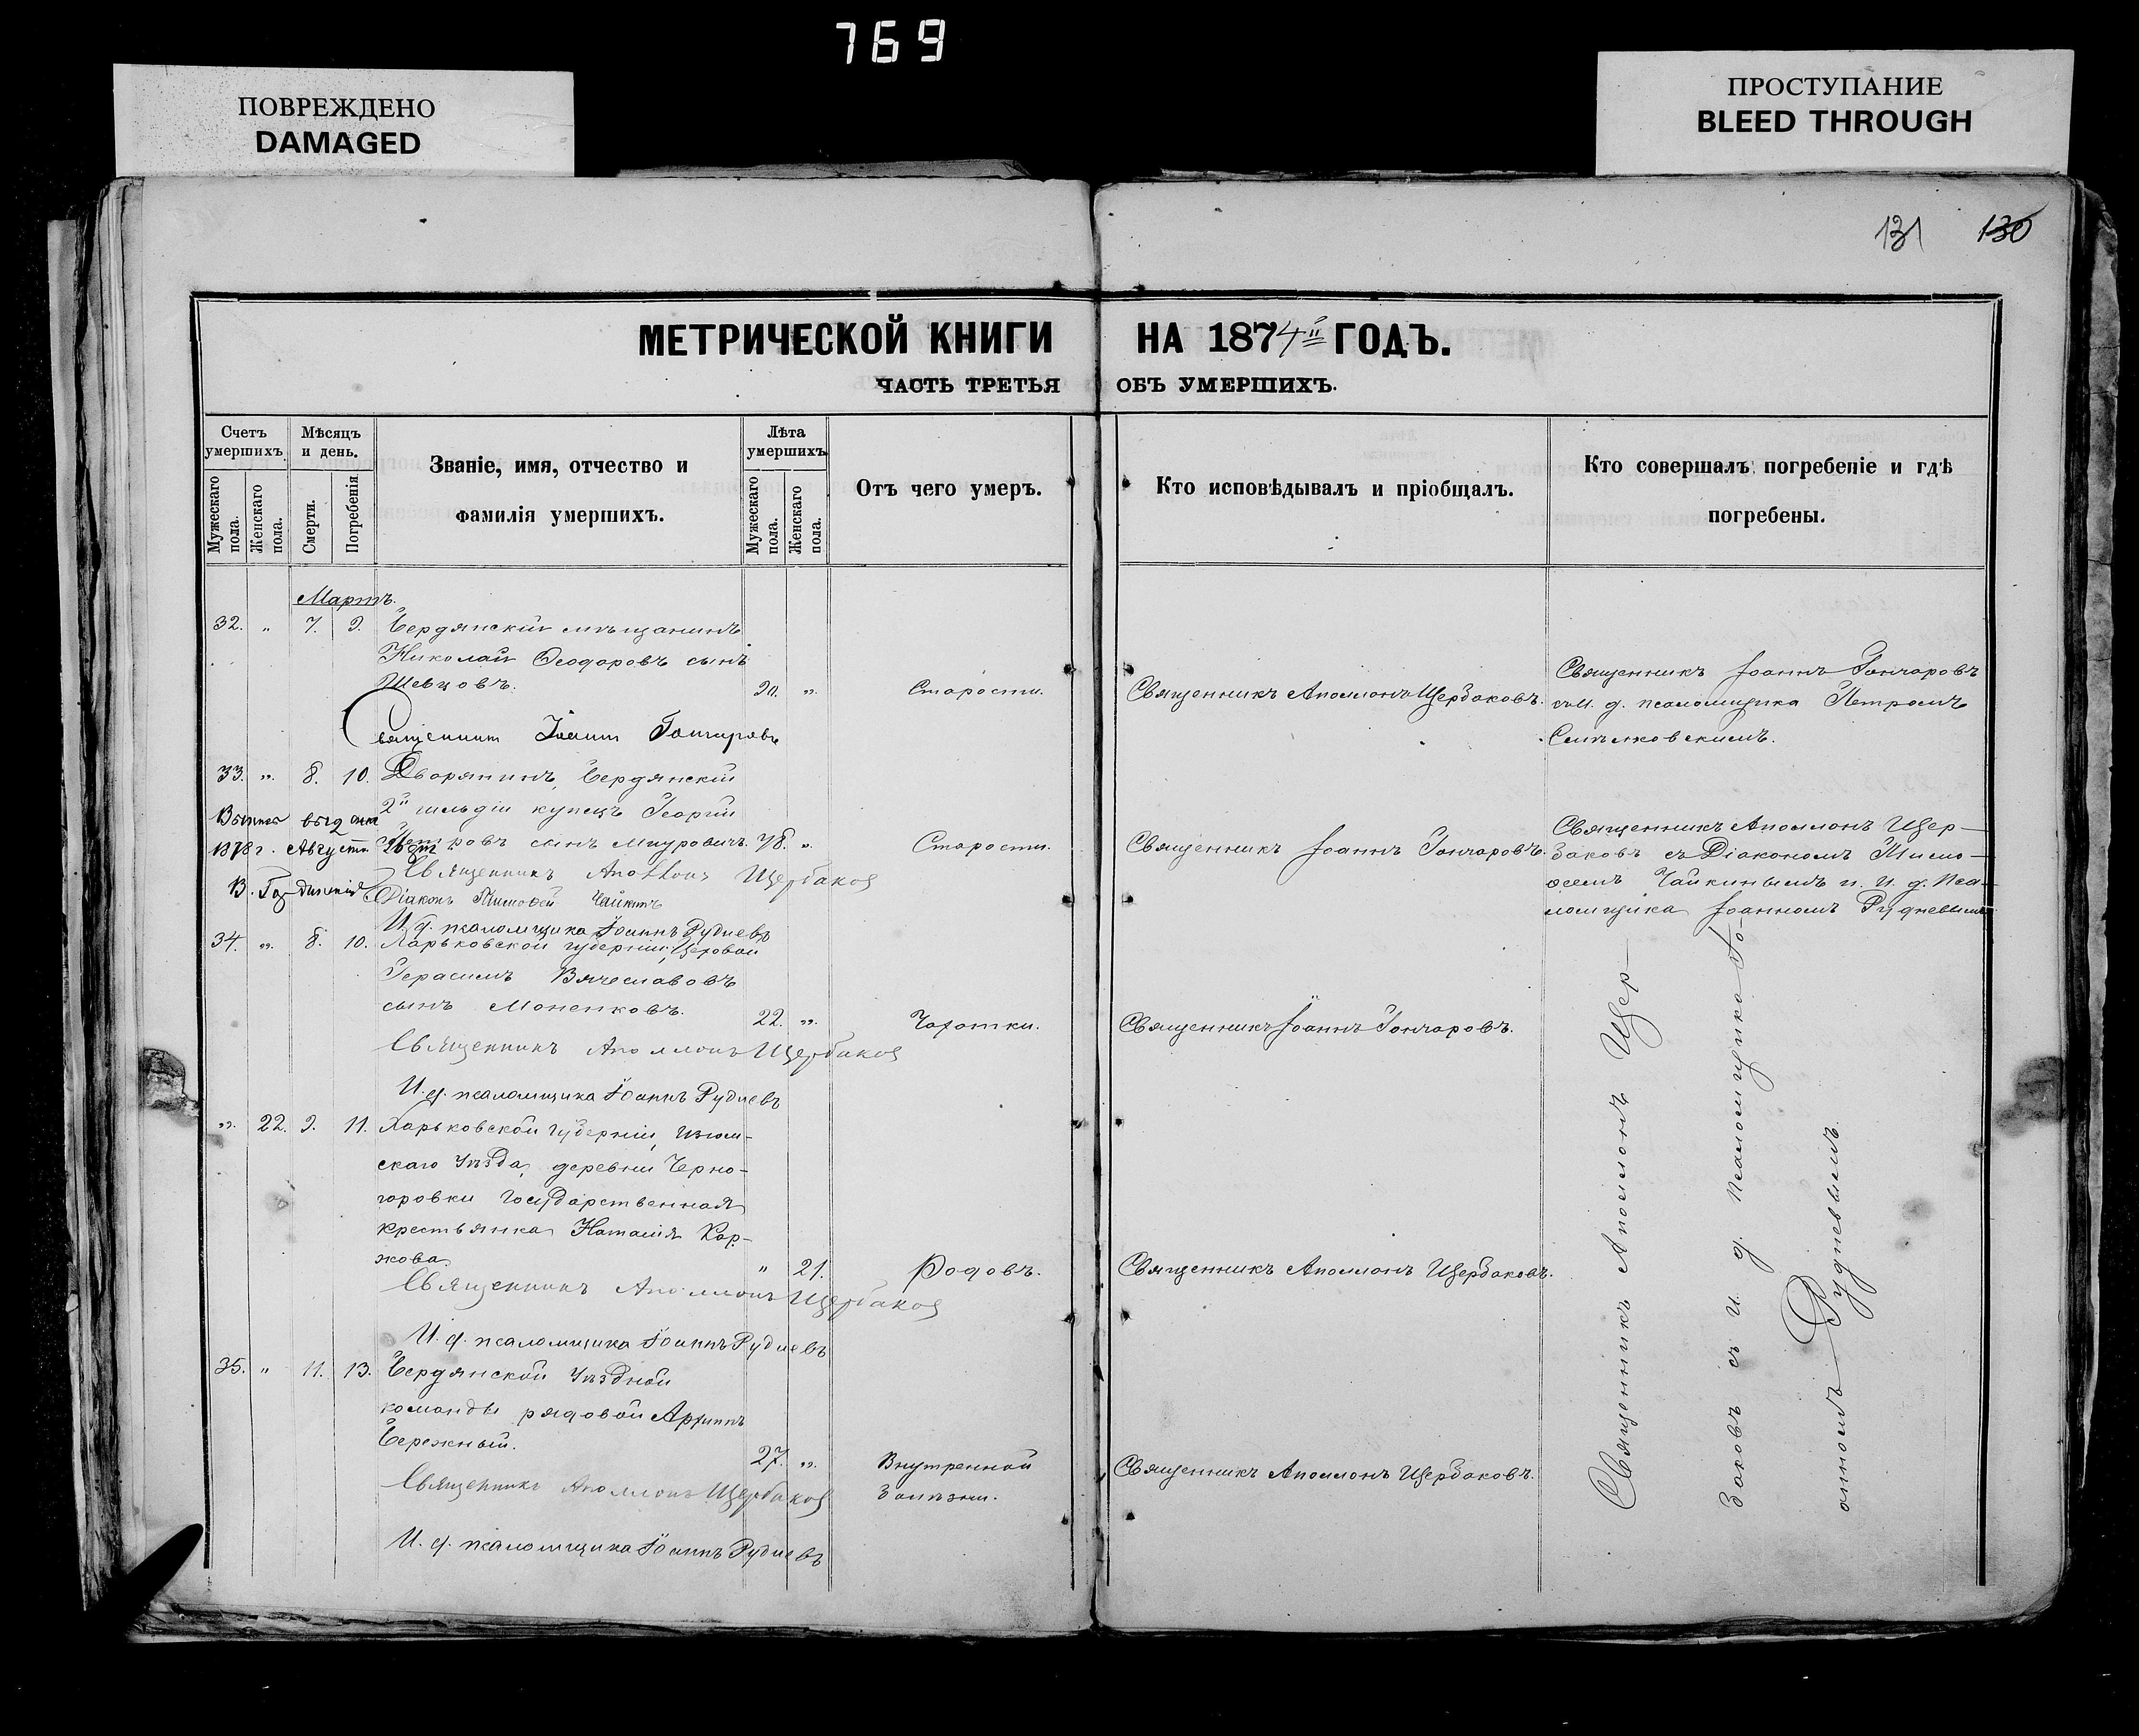 769
ПОВРЕЖДЕНО
DAMAGED
ПРОСТУПАНИЕ
BLEED THROUGH
131 130
МЕТРИЧЕСКОЙ КНИГИ НА 1874й ГОДЪ.
ЧАСТЬ ТРЕТЬЯ ОБЪ УМЕРШИХЪ.
Счетъ умершихъ.
Мужескаго пола.
Женскаго пола.
Мѣсяцъ и день.
Смерти.
Погребенія.
Званіе, имя, отчество и
фамилія умершихъ.
Лѣта умершихъ
Мужескаго пола.
Женскаго пола.
Отъ чего умеръ.
Кто исповѣдывалъ и пріобщалъ.
Кто совершалъ погребеніе и гдѣ
погребены.
Мартъ.
32. " 7. 9. Бердянскій мѣщанинъ
Николай Ѳеодоровъ сынъ
Шевцовъ. 90. " Старости. Священникъ Аполлонъ Щербаковъ.
Священникъ Іоаннъ Гончаровъ
съ И. д. псаломщика Петромъ
Священник Іоанн Гончаровъ
33. " 8. 10. Дворянинъ, Бердянскій
2й гильдіи купецъ Георгій
Петровъ сынъ Мигуровичъ. 78. " Старости. Священникъ Іоаннъ Гончаровъ.
Священникъ Аполлонъ Щер-
баковъ съ Діакономъ Тимо-
ѳеемъ Чайкинымъ и И. д. Пса-
ломщика Іоанномъ Рудневымъ
выдана
1878 г. Августа
Священникъ Аполлонъ Щербаков
Діаконъ Тимофей Чайкинъ
И. д. псаломщика Іоаннъ Рудневъ
34. " 8. 10. Харьковской губерніи,
Герасимъ Вячеславовъ
сынъ Моненковъ. 22. " Чахотки. Священникъ Іоаннъ Гончаровъ.
Священникъ Аполлонъ Щербаков
И. д. псаломщика Іоаннъ Рудневъ
" 22. 9. 11. Харьковской губерніи, Изюм-
скаго уѣзда, деревни Черно-
горовки Государственная
крестьянка Наталія Кор-
жова. " 21. Родовъ. Священникъ Аполлонъ Щербаковъ.
Священникъ Аполлонъ Щербаков
И. д. псаломщика Іоаннъ Рудневъ
35. " 11. 13. Бердянской уѣздной
команды рядовой Архипъ
Бережный. 27. " Внутренной
болѣзни. Священникъ Аполлонъ Щербаковъ.
Священникъ Аполлонъ Щербаков
И. д. псаломщика Іоаннъ Рудневъ
Священникъ Аполлонъ Щер-
баковъ съ И. д. псаломщика Іо-
анномъ Рудневымъ.